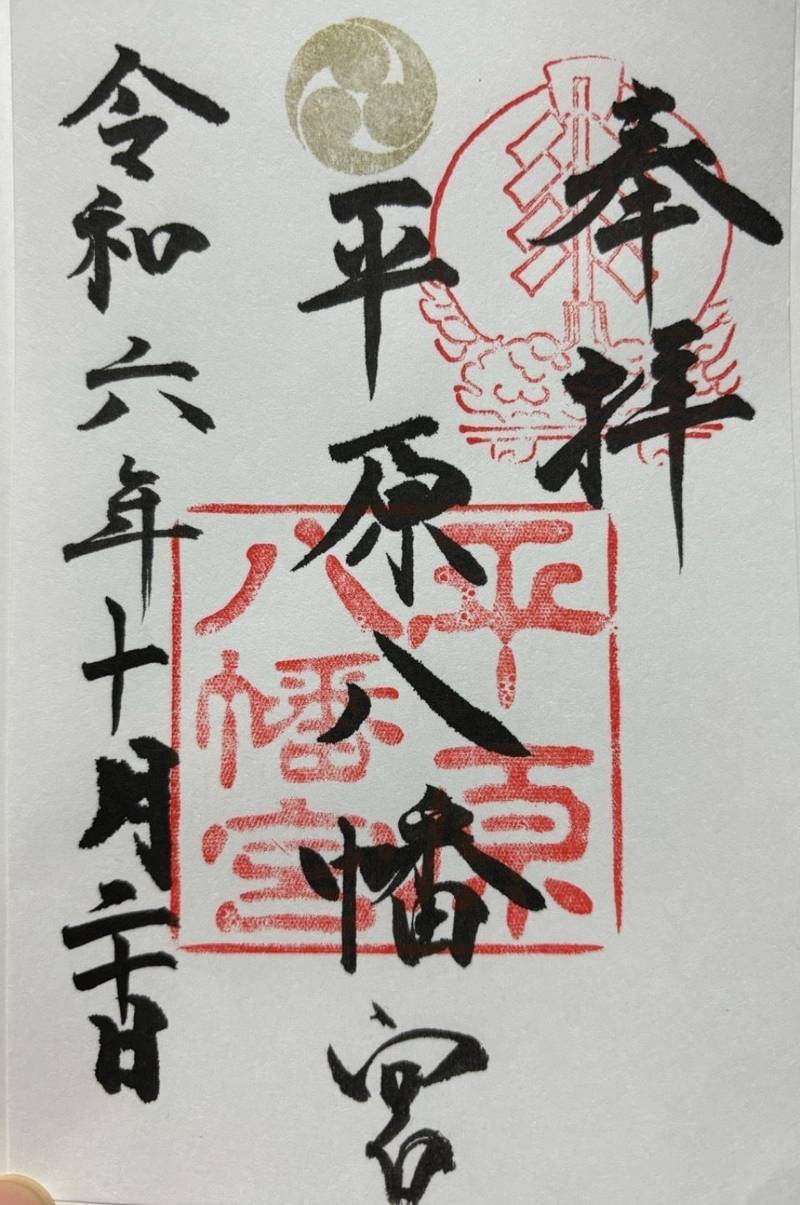 奉拝
平原八幡宮
平原
八幡宮
令和六年十月二十日